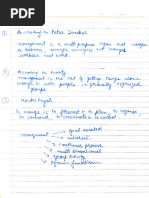 ① According to Peter Drucker
management is a multi purpose organ that manages
a business, manages managers and manages
workers and work.
② According to Koontz
management is the art of getting things done
through & with people in formally organized
groups.
③ Henri Fayol
To manage is to forecast & to plan, to organise,
to command, to coordinate & to control
management
→ goal oriented
→ universal
→ continuous process
→ multi dimensional
→ group Activity
→ dynamic function